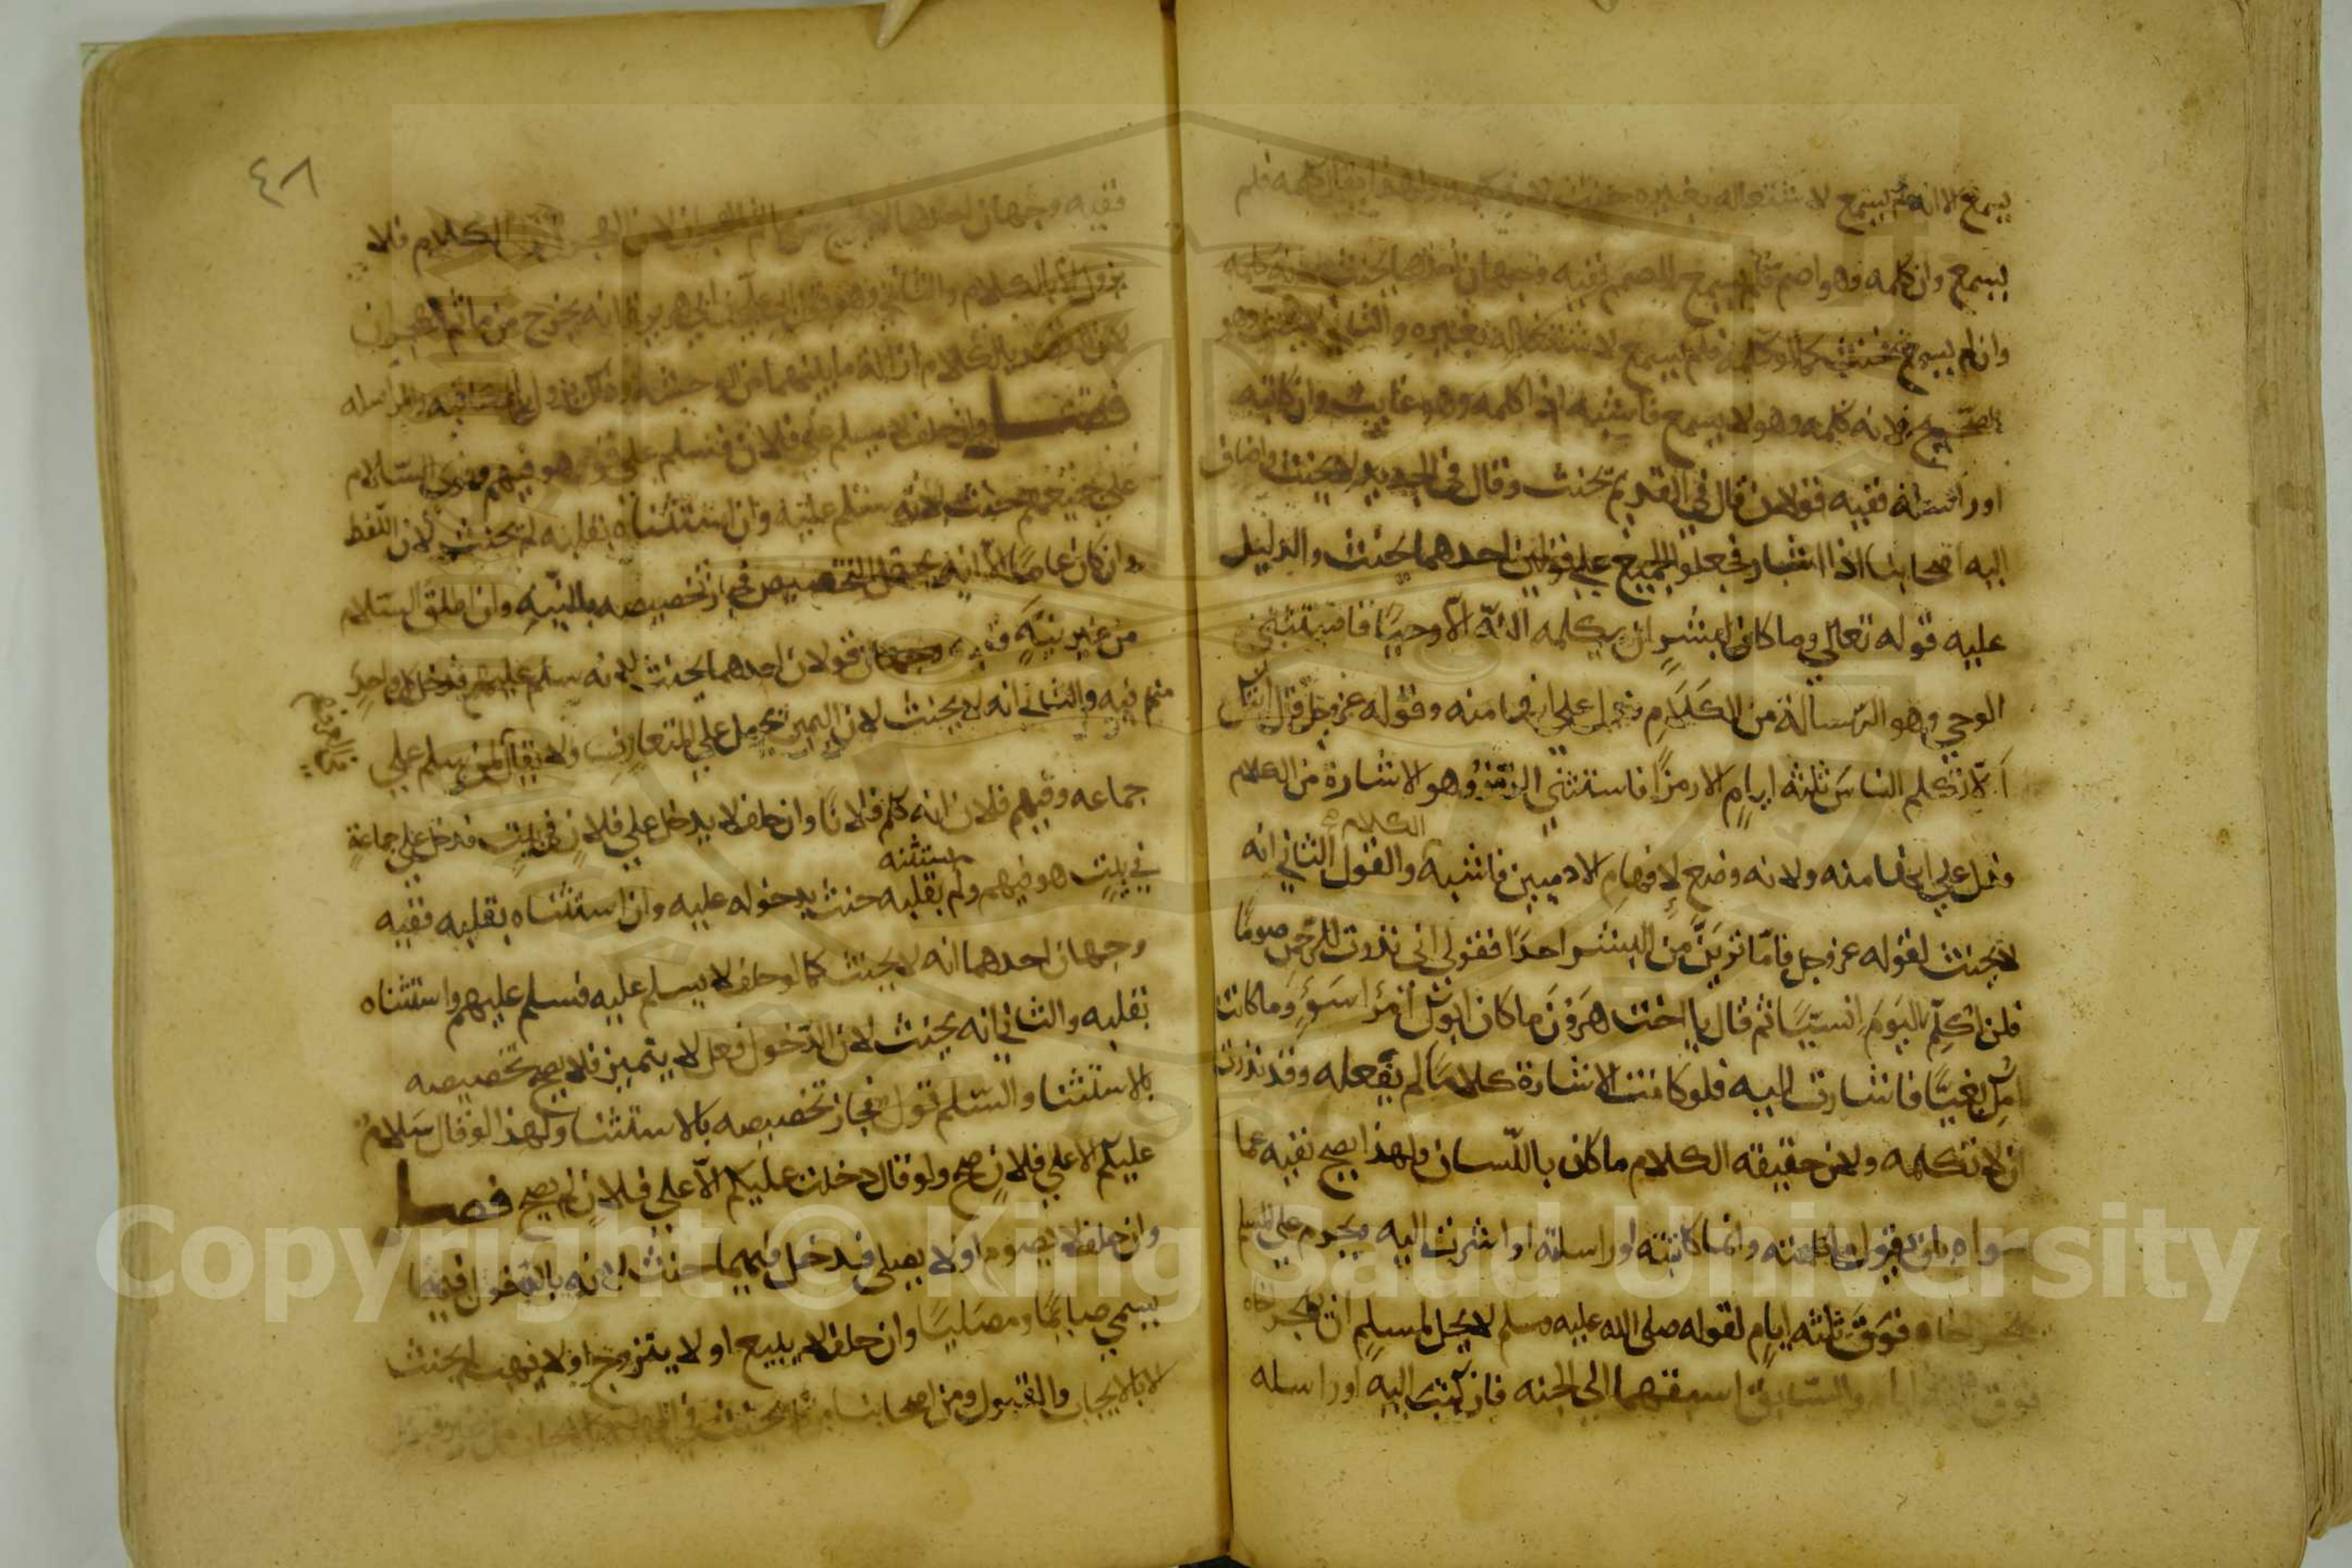 يسمع الا انه لم يسمع لاشتغاله بغيره حنث لانه كلمه ولهذا يقال كلمه فلم
يسمع وان كلمه وهو اصم فلم يسمع للصمم ففيه وجهان احدهما يحنث لانه كلمه
وان لم يسمع فحنث كما لو كلمه فلم يسمع لاشتغاله بغيره والثاني لا يحنث وهو
الصحيح لانه كلمه وهو لا يسمع فاشبه اذا كلمه وهو غايب وان كاتبه
او راسله ففيه قولان قال في القديم يحنث وقال في الجديد لا يحنث واضاف
اليه اصحابنا اذا اشار فجعلوا الجميع على قولين احدهما يحنث والدليل
عليه قوله تعالى وما كان لبشر ان يكلمه الله الا وحيا فاستثنى
الوحي وهو الرسالة من الكلام فدل على انها منه وقوله عز وجل قال ايتك
الا تكلم الناس ثلثه ايام الا رمزا فاستثنى الرمز وهو الاشارة من الكلام
فدل على انها منه ولانه وضع لافهام الادميين فاشبه الكلام والقول الثاني انه
لا يحنث لقوله عز وجل فاما ترين من البشر احدا فقولي اني نذرت للرحمن صوما
فلن اكلم اليوم انسيا ثم قال يا اخت هرون ما كان ابوك امرا سوء وما كانت
امك بغيا فاشارت اليه فلو كانت الاشارة كلاما لم تفعله وقد نذرت
ان لا تكلمه ولان حقيقه الكلام ما كان باللسان ولهذا يصح نفيه عما
سواه بان يقول ما كلمته وانما كاتبته او راسلته او اشرت اليه ويحرم على المسلم
يهجر اخاه فوق ثلثه ايام لقوله صلى الله عليه وسلم لا يحل لمسلم ان يهجر اخاه
فوق ثلثه ايام والسابق اسبقهما الى الجنه فان كتب اليه او راسله
٤٨
ففيه وجهان احدهما لا يخرج من ماثم الهجران لان الهجران ترك الكلام فلا
يزول الا بالكلام والثاني وهو قول ابي علي بن ابي هريرة انه يخرج من ماثم الهجران
لان القصد بالكلام ازالة ما بينهما من الوحشه وذلك يزول بالمكاتبه والمراسله
فصل وان حلف لا يسلم على فلان فسلم على قوم هو فيهم ونوى السلام
على جميعهم حنث لانه سلم عليه وان استثناه بقلبه لم يحنث لان اللفظ
وان كان عاما الا انه يحتمل التخصيص فجاز تخصيصه بالنيه وان اطلق السلام
من غير نية ففيه قولان احدهما يحنث لانه سلم عليهم فدخل كل واحد
منهم فيه والثاني انه لا يحنث لان اليمين تحمل على المتعارف ولا يقال لمن سلم على
جماعه وفيهم فلان انه كلم فلانا وان حلف لا يدخل على فلان في بيت فدخل على جماعة
في بيت هو فيهم ولم يستثنه بقلبه حنث بدخوله عليه وان استثناه بقلبه ففيه
وجهان احدهما انه لا يحنث كما لو حلف لا يسلم عليه فسلم عليهم واستثناه
بقلبه والثاني انه يحنث لان الدخول فعل لا يتميز فلا يصح تخصيصه
بالاستثنا والسلم قول فجاز تخصيصه بالاستثنا ولهذا لو قال سلام
عليكم الا على فلان صح ولو قال دخلت عليكم الا على فلان لم يصح فصل
وان حلف لا يصوم او لا يصلي فدخل فيهما حنث لانه بالدخول فيهما
يسمى صايما ومصليا وان حلف لا يبيع او لا يتزوج او لا يهب لم يحنث
الا بالايجاب والقبول ومن اصحابنا من قال يحنث في الهبه